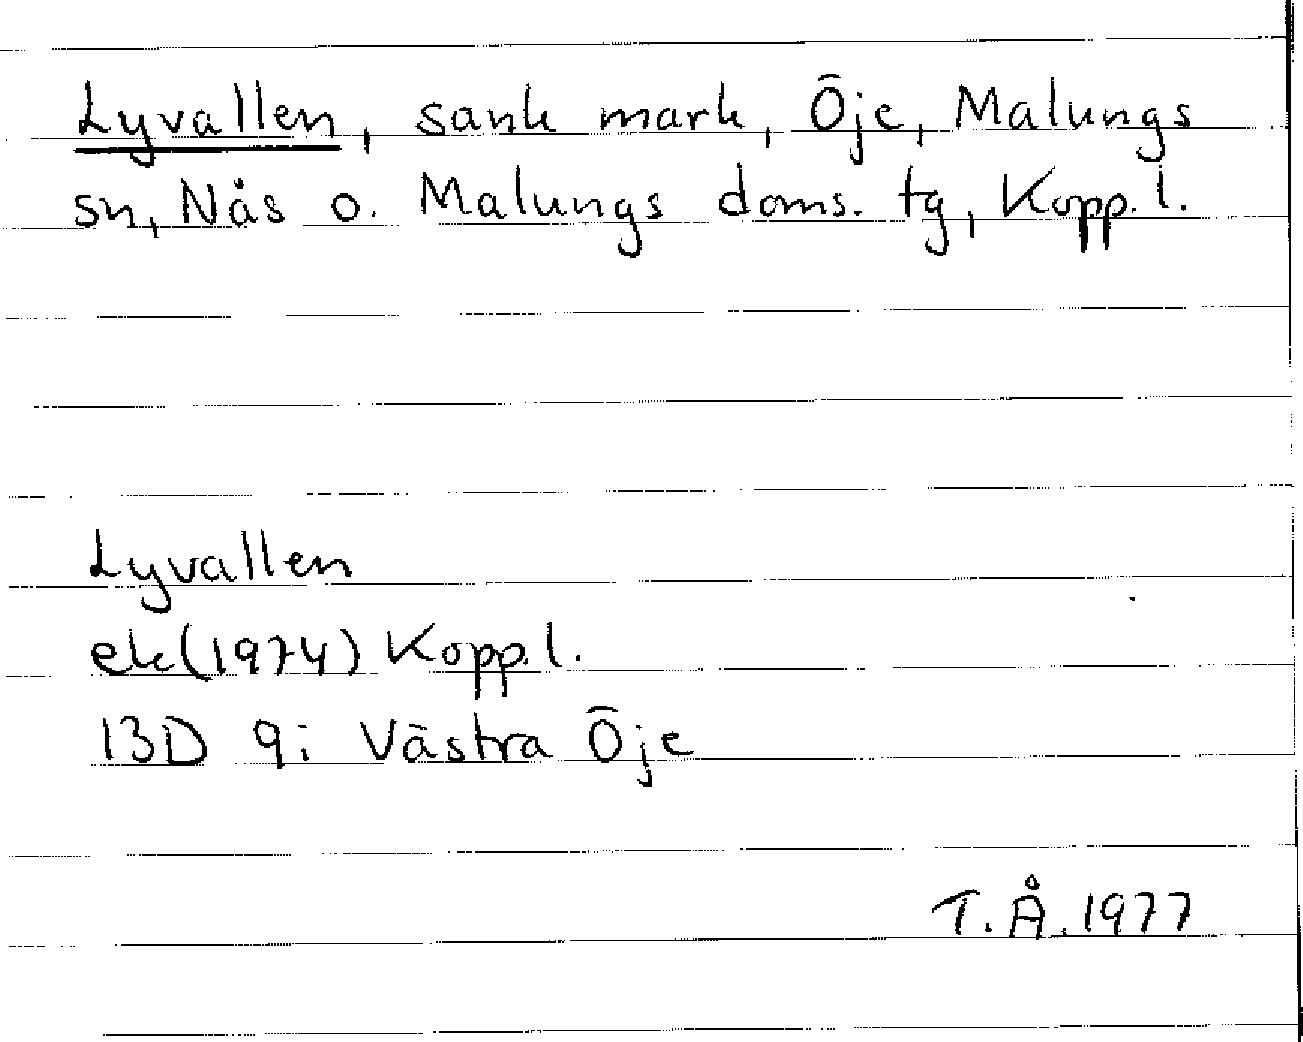 Lyvallen, sank mark, Öje, Malungs
sn, Nås o. Malungs doms. tg, Kopp. l.
Lyvallen
ek (1974) Kopp. l.
13D 9i Västra Öje
T. Å. 1977